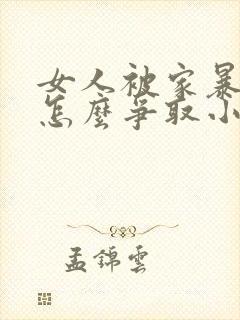 女人被家暴
怎麼爭取小
孟錦雲